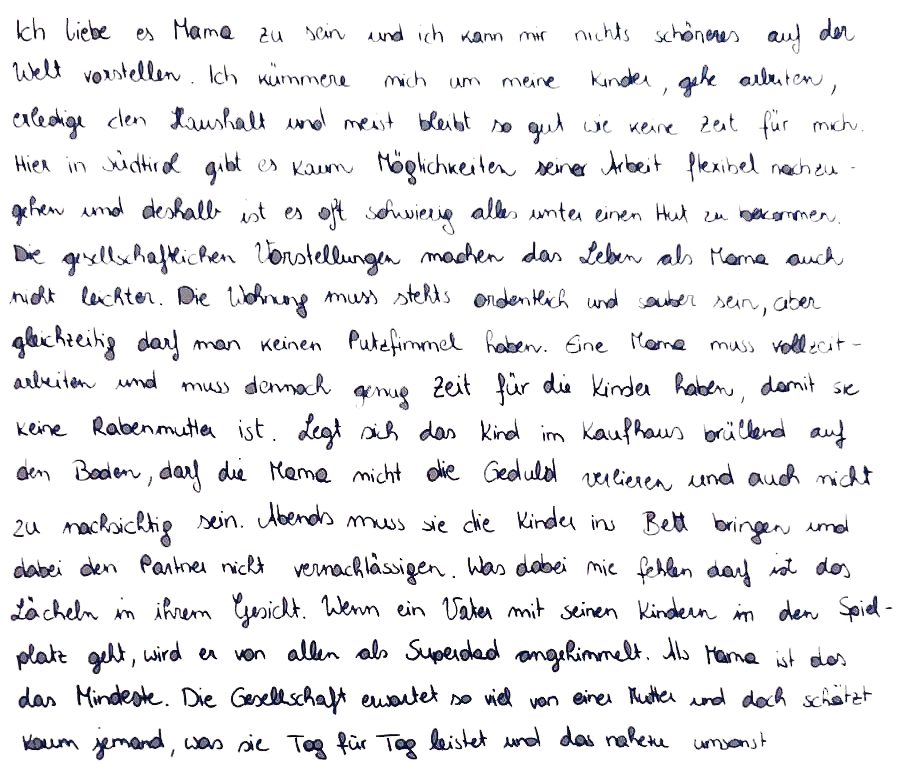 Ich liebe es Mama zu sein und ich kann mir nichts schöneres auf der
Welt vorstellen. Ich kümmere mich um meine Kinder, gehe arbeiten,
erledige den Haushalt und meist bleibt so gut wie keine Zeit für mich.
Hier in Südtirol gibt es kaum Möglichkeiten seiner Arbeit flexibel nachzu-
gehen und deshalb ist es oft schwierig alles unter einen Hut zu bekommen.
Die gesellschaftlichen Vorstellungen machen das Leben als Mama auch
nicht leichter. Die Wohnung muss stehts ordentlich und sauber sein, aber
gleichzeitig darf man keinen Putzfimmel haben. Eine Mama muss vollzeit-
arbeiten und muss dennoch genug Zeit für die Kinder haben, damit sie
keine Rabenmutter ist. Legt sich das Kind im Kaufhaus brüllend auf
den Boden, darf die Mama nicht die Geduld verlieren und auch nicht
zu nachsichtig sein. Abends muss sie die Kinder ins Bett bringen und
dabei den Partner nicht vernachlässigen. Was dabei nie fehlen darf ist das
Lächeln in ihrem Gesicht. Wenn ein Vater mit seinen Kindern in den Spiel-
platz geht, wird er von allen als Superdad angehimmelt. Als Mama ist das
das Mindeste. Die Gesellschaft erwartet so viel von einer Mutter und doch schätzt
kaum jemand, was sie Tag für Tag leistet und das nahezu umsonst